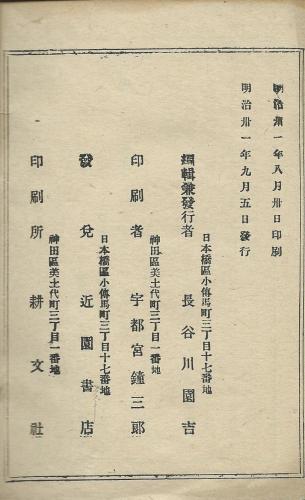 明治卅一年八月卅日印刷
明治卅一年九月五日發行
日本橋區小傳馬町三丁目十七番地
編輯兼發行者 長谷川園吉
神田區美土代町三丁目一番地
印刷者 宇都宮鐘三郎
日本橋區小傳馬町三丁目十七番地
發兌 近園書店
神田區美土代町三丁目一番地
印刷所 耕文社